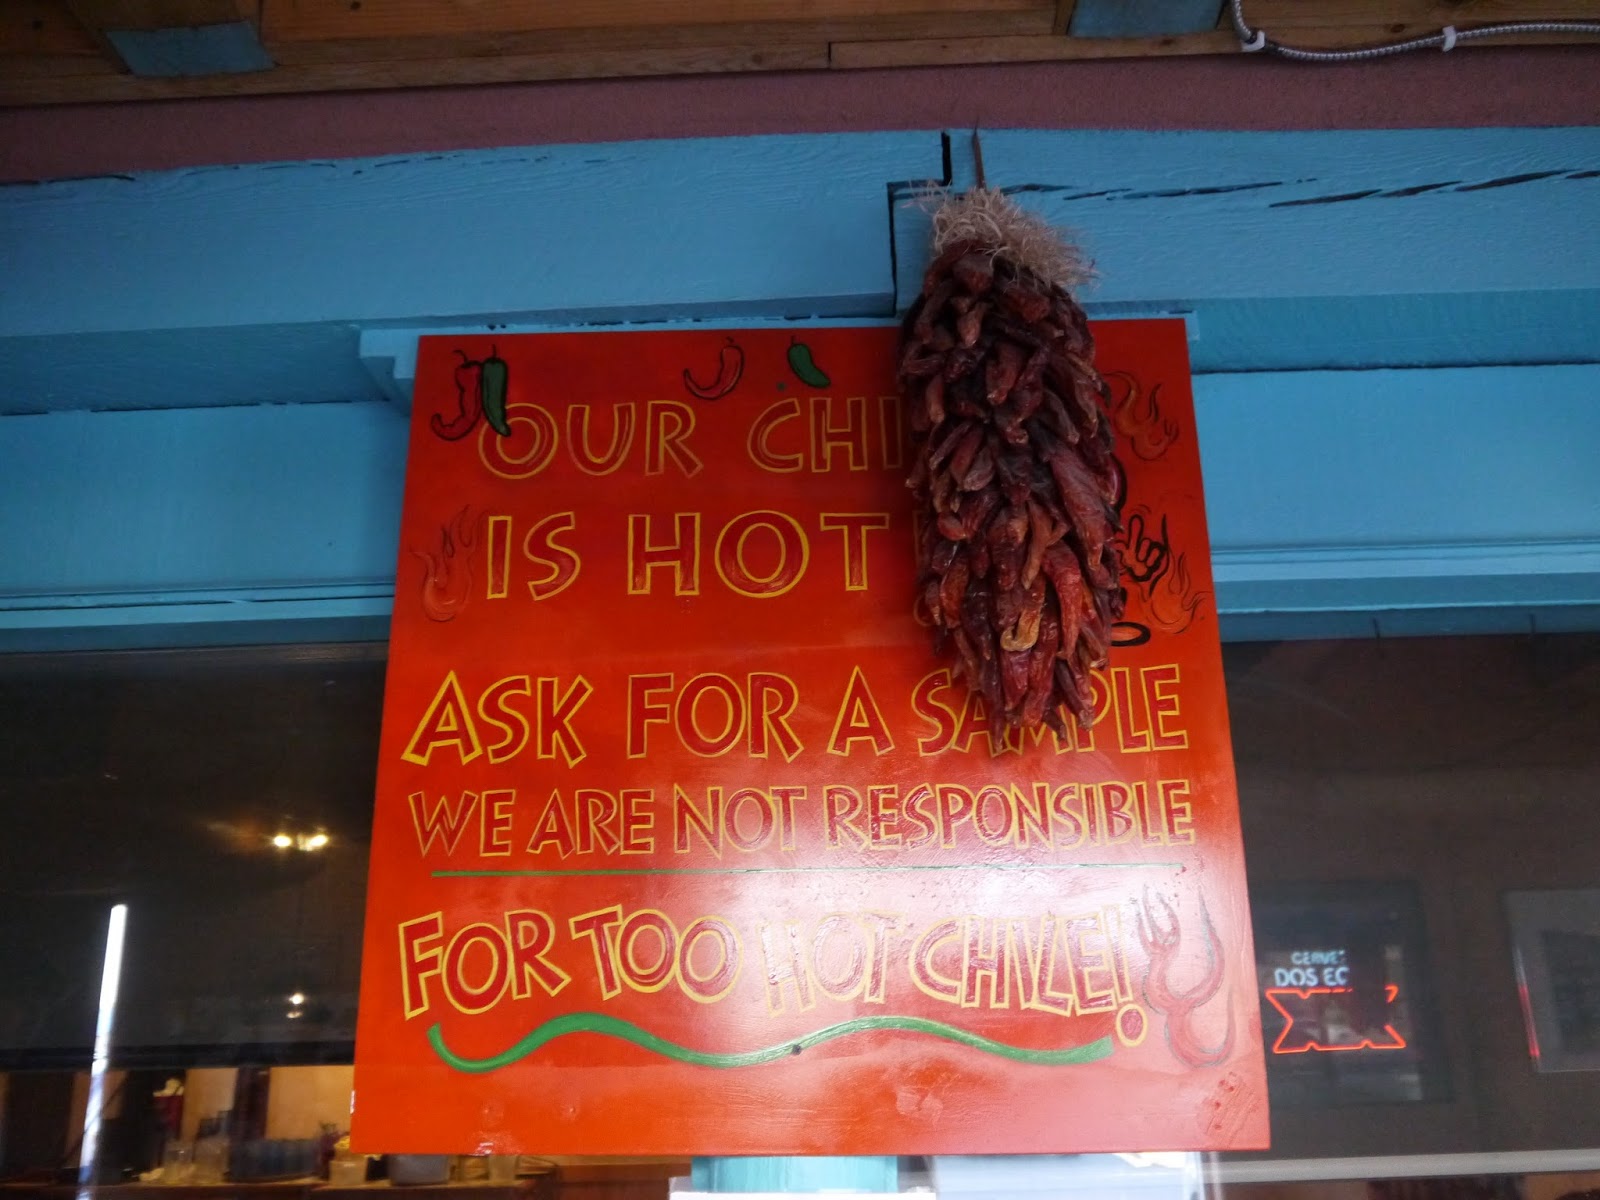 OUR CHI
IS HOT
ASK FOR A SAMPLE
WE ARE NOT RESPONSIBLE
FOR TOO HOT CHILE!
DOS EC
XX